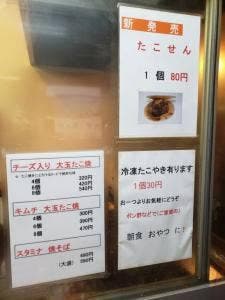 新 発 売
たこせん
1 個 80円
チーズ入り 大玉たこ焼
4個 320円
6個 420円
8個 540円
キムチ 大玉たこ焼
4個 300円
6個 390円
8個 470円
スタミナ 焼そば
480円
(大盛) 580円
冷凍たこやき有ります
1個30円
お一つよりお気軽にどうぞ
(ポン酢などでご家庭の)
朝食 おやつ に!